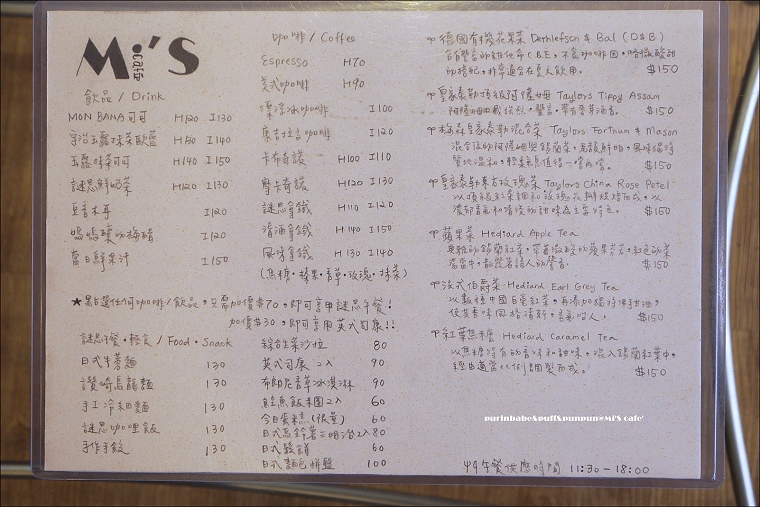 Mi'S
cafe
飲品 / Drink
MON BANA 可可 H120 I130
宇治玉露抹茶歐蕾 H130 I140
玉露抹茶可可 H140 I150
謎思鮮奶茶 H120 I130
I120
嗚嗚醸の梅醋 I120
當日鮮果汁 I150
咖啡 / Coffee
Espresso H70
美式咖啡 H90
漂浮冰咖啡 I100
康吉拉吉咖啡 I120
卡布奇諾 H100 I110
摩卡奇諾 H120 I130
謎思拿鐵 H110 I120
清酒拿鐵 H140 I150
風味拿鐵 H130 I140
(焦糖・榛果・香草・玫瑰・抹茶)
★點選任何咖啡/飲品,只需加價$70,即可享用謎思午餐!
加價$30,即可享用英式司康!!
謎思午餐・輕食 / Food・Snack
日式牛蒡麵 130
讚崎烏龍麵 130
手工冷細麵 130
謎思咖哩飯 130
手作手餃 130
綜合生菜沙拉 80
英式司康 2入 90
布朗尼香草冰淇淋 90
鮭魚飯糰2入 60
今日蛋糕(限量) 60
日式馬鈴薯三明治2入 80
日式鬆餅 60
日式麵包拼盤 100
德國有機花果茶 Dethlefsen & Bal (D&B)
含有豐富的維他命C&E,不含咖啡因,略微酸甜
的搭配,非常適合在夏天飲用。 $150
皇家泰勒頂級阿薩姆 Taylors Tippy Assam
$150
梅森皇家泰勒混合茶 Taylors Fortnum & Mason
混合後的阿薩姆與錫蘭茶,
$150
皇家泰勒東方玫瑰茶 Taylors China Rose Petel
以頂級紅茶調和玫瑰花瓣烘焙而成,以
濃郁香氣和清後的甜味為主要特色。 $150
蘋果茶 Hediard Apple Tea
典雅的錫蘭紅茶,帶著微酸的蘋果芬芳,紅色的茶
湯當中,散發著誘人的豐香。 $150
法式伯爵茶 Hediard Earl Grey Tea
以數種中國白毫紅茶,再添加獨特佛手柑油,
使其香味風格清新,清氣怡人。 $150
紅葉焦糖 Hediard Caramel Tea
以焦糖特有的香味和甜味,混入錫蘭紅葉中,
經由適當比例調製而成。 $150
purinbabe&puff&punpun@MI'S cafe'
午餐供應時間 11:30-18:00